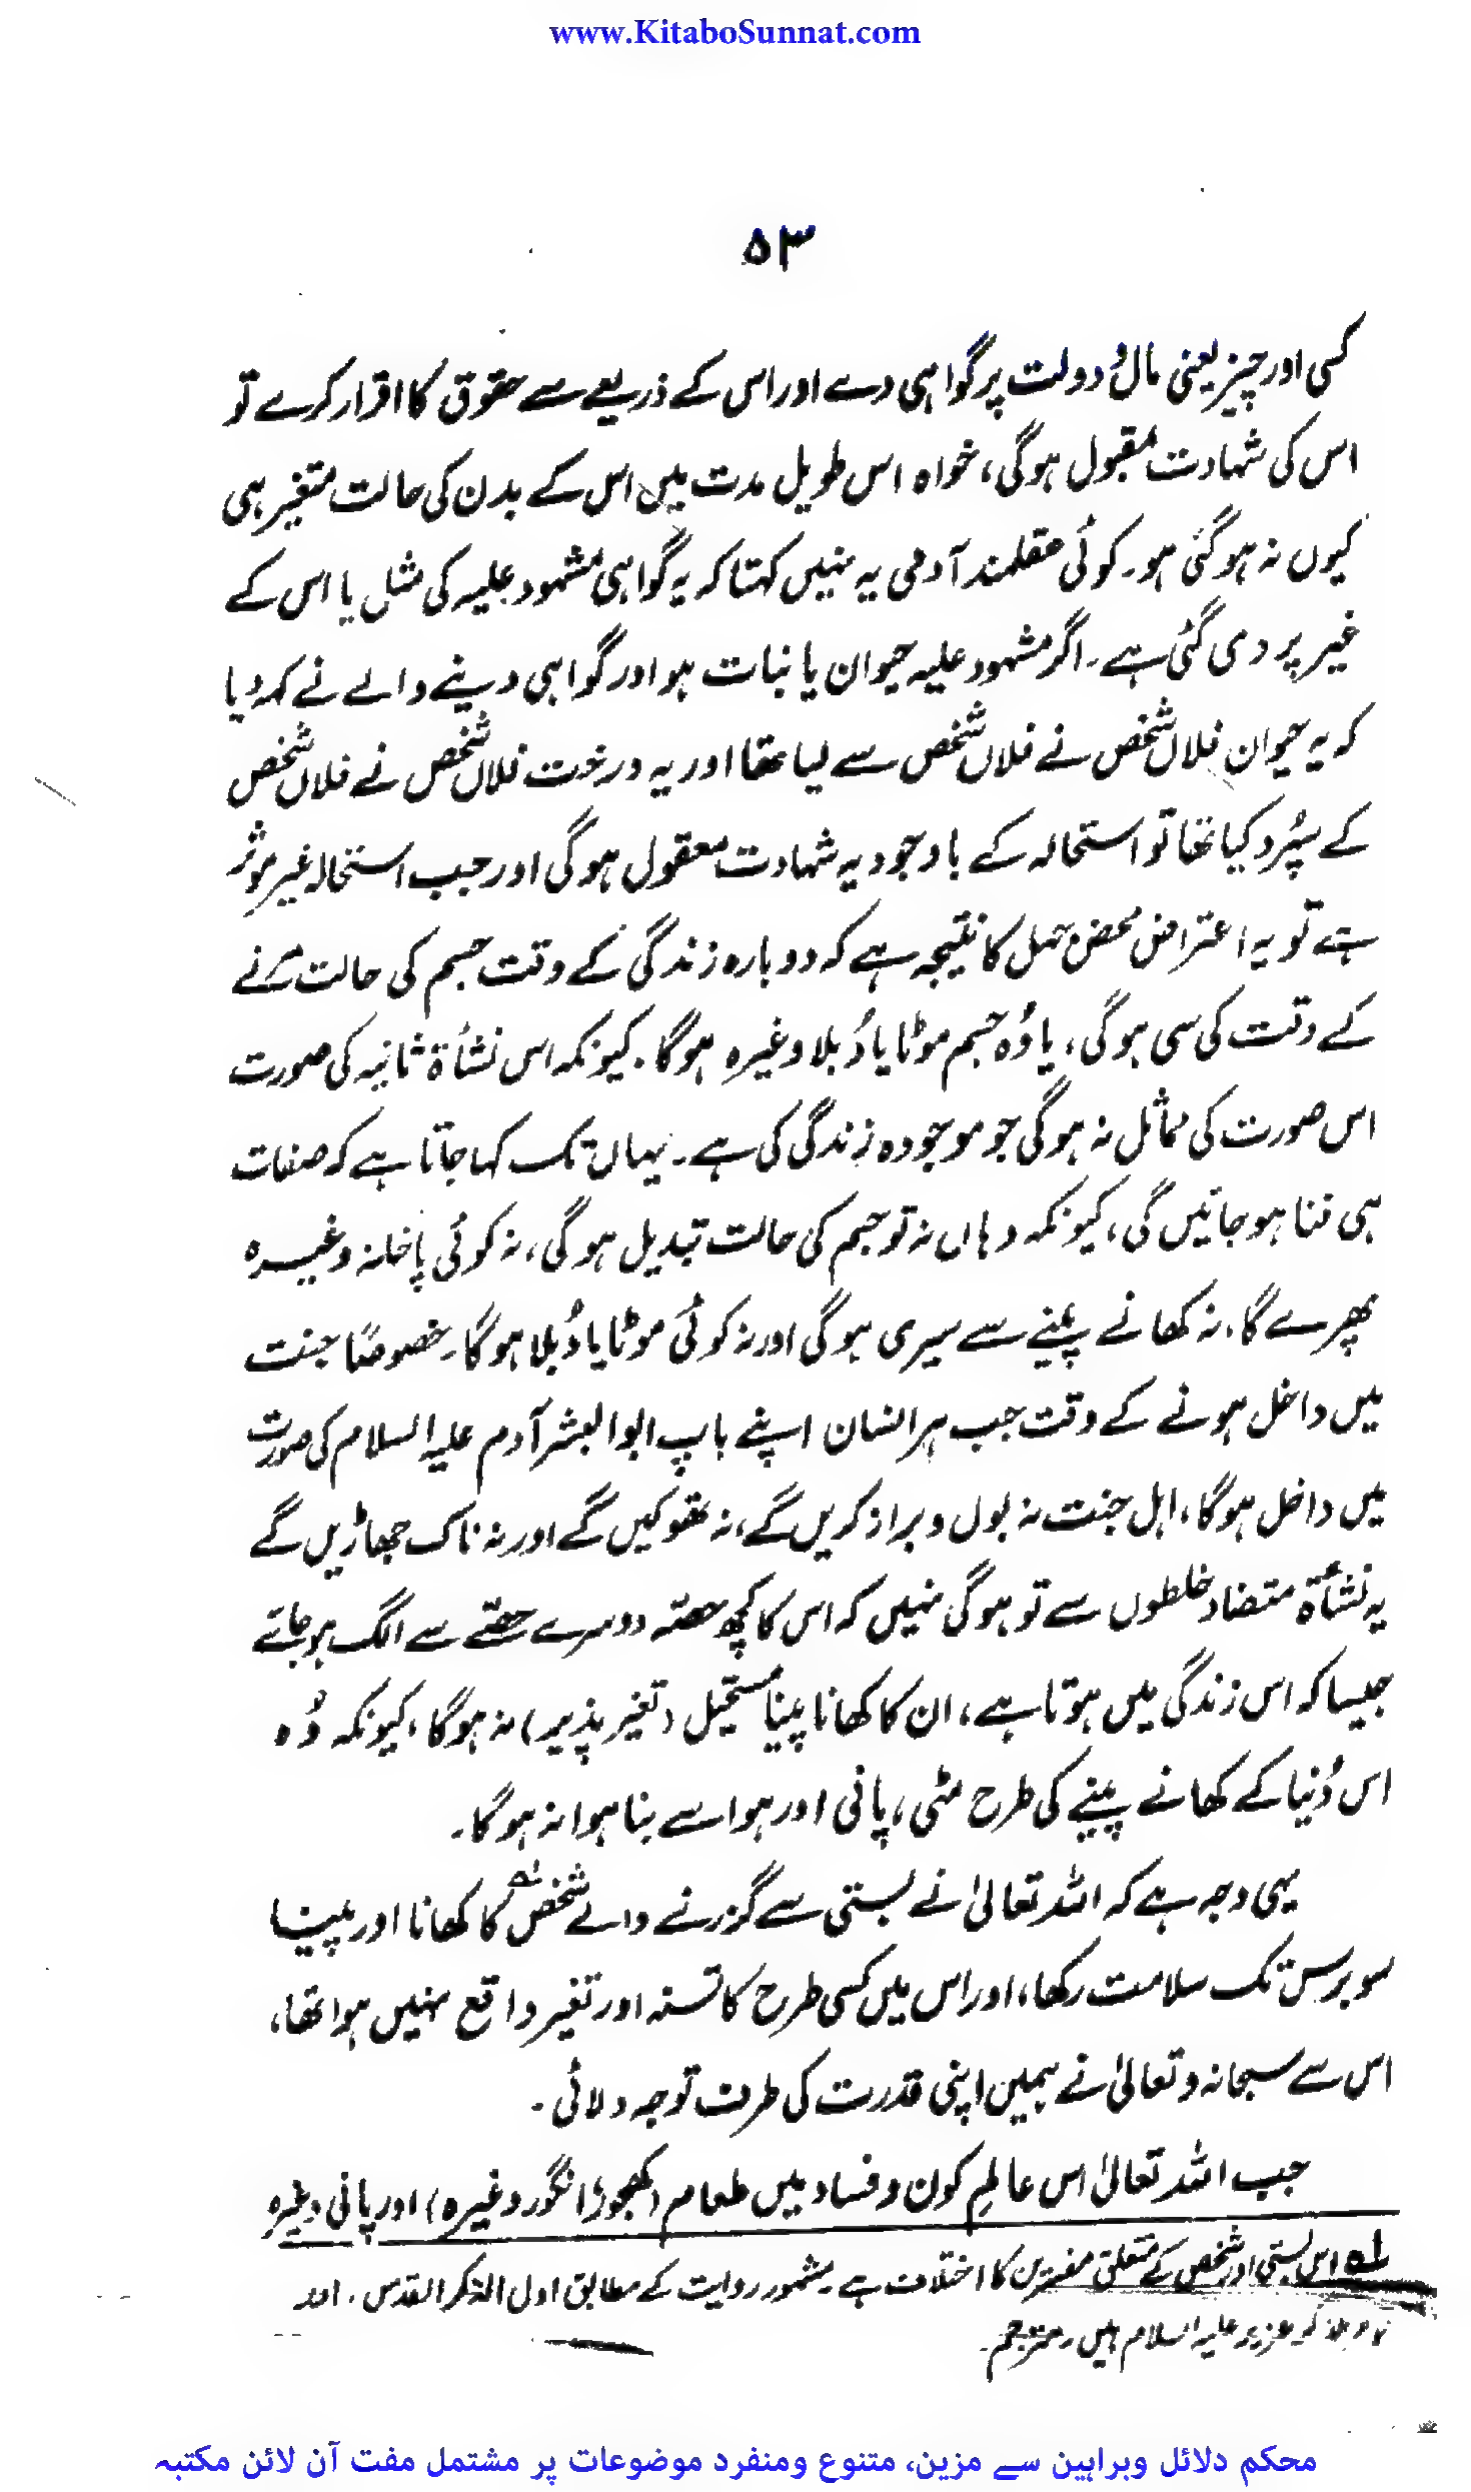 www.KitaboSunnat.com
۵۳
کسی اور چیز یعنی مال و دولت پر گواہی دے اور اس کے ذریعے سے حقوق کا اقرار کرے تو
اس کی شہادت مقبول ہوگی، خواہ اس طویل مدت میں اس کے بدن کی حالت متغیر ہی
کیوں نہ ہوگئی ہو۔ کوئی عقلمند آدمی یہ نہیں کہتا کہ یہ گواہی مشہود علیہ کی مثل یا اس کے
غیر پر دی گئی ہے۔ اگر مشہود علیہ حیوان یا نبات ہو اور گواہی دینے والے نے کہہ دیا
کہ یہ حیوان فلاں شخص نے فلاں شخص سے لیا تھا اور یہ درخت فلاں شخص نے فلاں شخص
کے سپُرد کیا تھا تو استحالہ کے باوجود یہ شہادت معقول ہوگی اور جب استحالہ غیر موثر
ہے تو یہ اعتراض محض جہل کا نتیجہ ہے کہ دوبارہ زندگی کے وقت جسم کی حالت مرنے
کے وقت کی سی ہوگی، یا وُہ جسم موٹا یا دُبلا وغیرہ ہوگا۔ کیونکہ اس نشأۃ ثانیہ کی صورت
اس صورت کی مماثل نہ ہوگی جو موجودہ زندگی کی ہے۔ یہاں تک کہا جاتا ہے کہ صفات
ہی فنا ہو جائیں گی، کیونکہ وہاں نہ تو جسم کی حالت تبدیل ہوگی، نہ کوئی پاخانہ وغیرہ
پھرے گا، نہ کھانے پینے سے سیری ہوگی اور نہ کوئی موٹا یا دُبلا ہوگا۔ خصوصًا جنت
میں داخل ہونے کے وقت جب ہر انسان اپنے باپ ابوالبشر آدم علیہ السلام کی صورت
میں داخل ہوگا، اہل جنت نہ بول و براز کریں گے، نہ تھوکیں گے اور نہ ناک جھاڑیں گے
یہ نشأۃ متضاد خلطوں سے تو ہوگی نہیں کہ اس کا کچھ حصّہ دوسرے حصّے سے الگ ہو جائے
جیسا کہ اس زندگی میں ہوتا ہے، ان کا کھانا پینا مستحیل (تغیر پذیر) نہ ہوگا، کیونکہ وُہ
اس دُنیا کے کھانے پینے کی طرح مٹی، پانی اور ہوا سے بنا ہوا نہ ہوگا۔
یہی وجہ ہے کہ اللہ تعالیٰ نے بستی سے گزرنے والے شخص ؎۱ کا کھانا اور پینا
سو برس تک سلامت رکھا، اور اس میں کسی طرح کا تسنہ اور تغیر واقع نہیں ہوا تھا،
اس سے سبحانہ و تعالیٰ نے ہمیں اپنی قدرت کی طرف توجہ دلائی۔
جب اللہ تعالیٰ اس عالمِ کون و فساد میں طعام (کھجور، انگور وغیرہ) اور پانی وغیرہ
؎۱ اس بستی اور شخص کے متعلق مفسرین کا اختلاف ہے۔ مشہور روایت کے مطابق اول الذکر القدس، اور
عزیر علیہ السلام ہیں۔ مترجم۔
محکم دلائل وبراہین سے مزین، متنوع ومنفرد موضوعات پر مشتمل مفت آن لائن مکتبہ